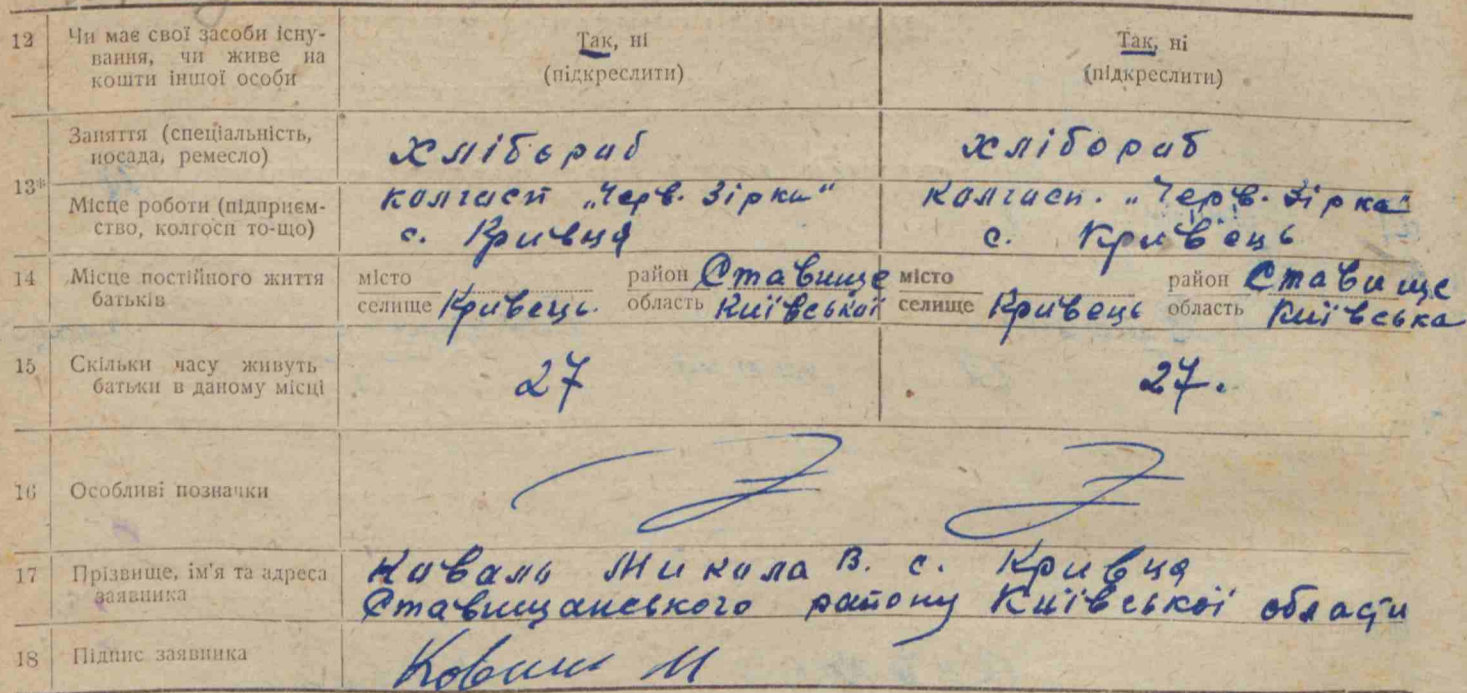 12 Чи має свої засоби існу-
вання, чи живе на
кошти іншої особи
Так, ні
(підкреслити)
Так, ні
(підкреслити)
13*
Заняття (спеціальність,
посада, ремесло)
хлібораб
хлібораб
Місце роботи (підприєм-
ство, колгосп то-що)
калгасп „Черв. Зірка“
с. Кривця
Калгасп. „Черв. Зірка
с. Кривець
14 Місце постійного життя
батьків
місто район Ставище
селище Кривець. область Київської
місто район Ставище
селище Кривець область Київська
15 Скільки часу живуть
батьки в даному місці
27
27.
16 Особливі позначки
17 Прізвище, ім'я та адреса
заявника
Коваль Микола В. с. Кривця
Ставищанського району Київської области
18 Підпис заявника
Коваль М